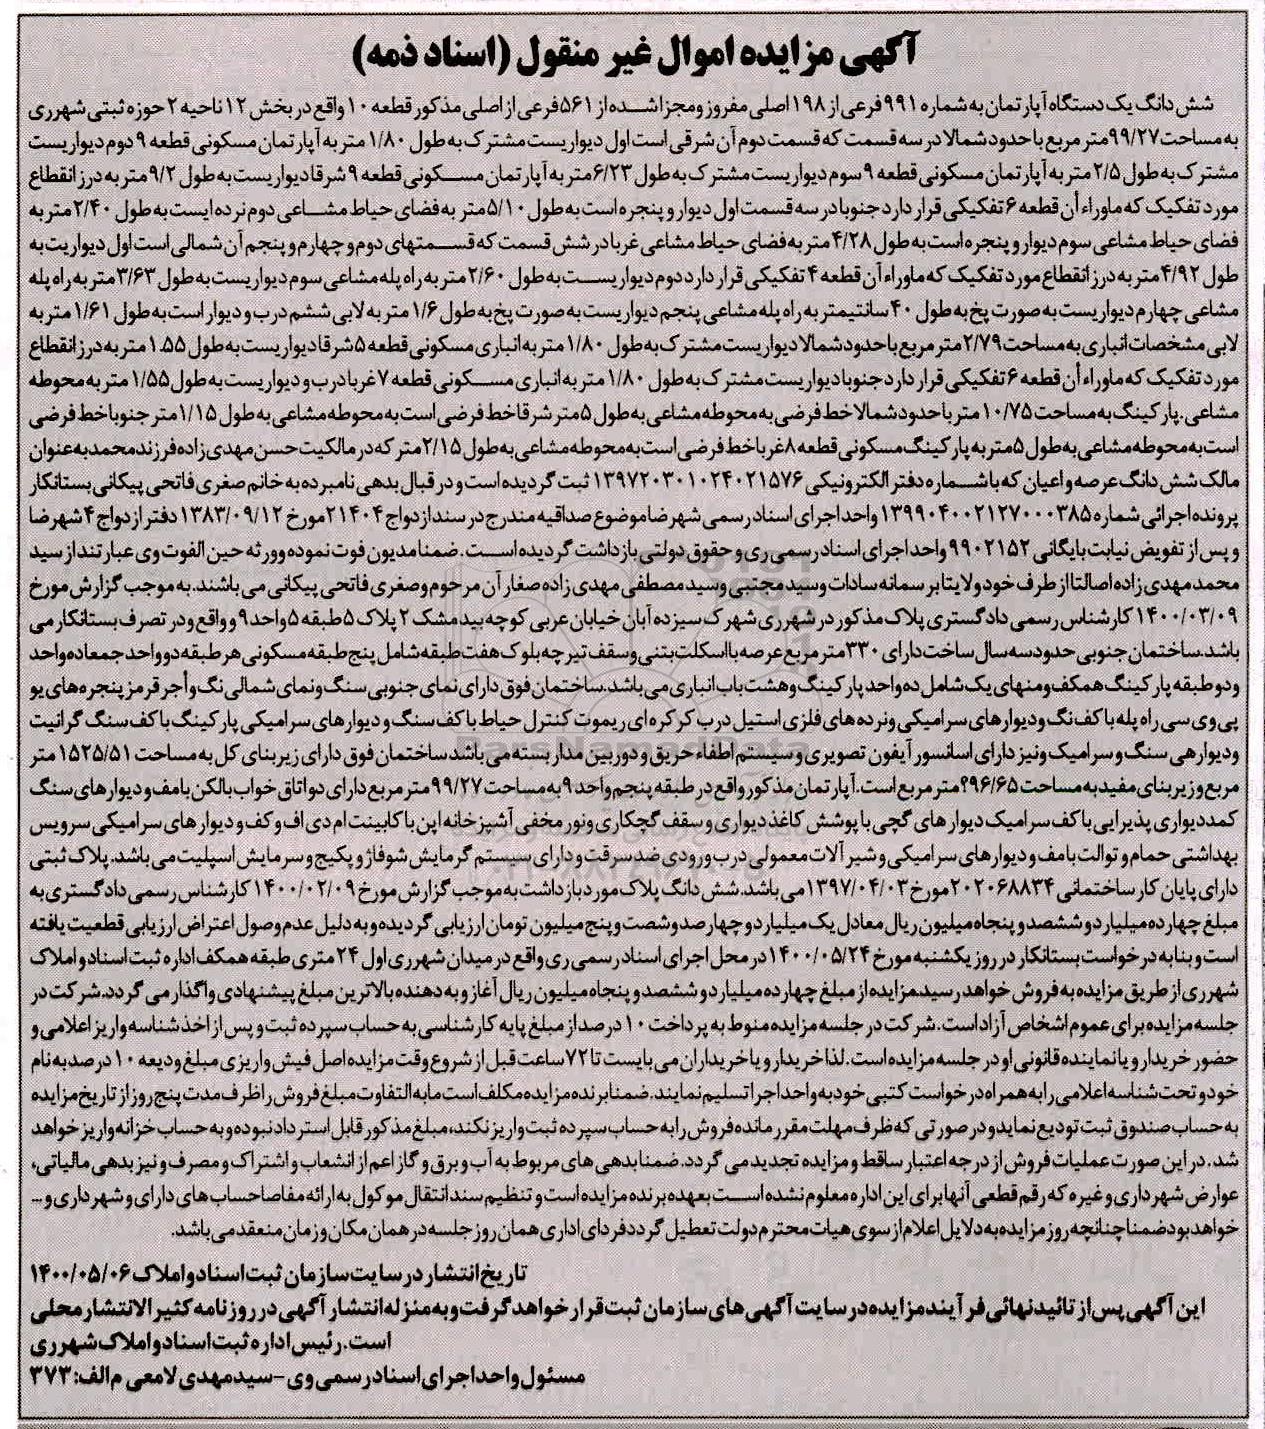 آگهی مزایده اموال غیر منقول (اسناد ذمه)
شش دانگ یک دستگاه آپارتمان به شماره ۹۹۱ فرعی از ۱۹۸ اصلی مفروز و مجزا شده از ۵۶۱ فرعی از اصلی مذکور قطعه ۱۰ واقع در بخش ۱۲ ناحیه ۲ حوزه ثبتی شهرری
به مساحت ۹۹/۲۷ متر مربع با حدود شمالا در سه قسمت که قسمت دوم آن شرقی است اول دیواریست مشترک به طول ۱/۸۰ متر به آپارتمان مسکونی قطعه ۹ دوم دیواریست
مشترک به طول ۲/۵ متر به آپارتمان مسکونی قطعه ۹ سوم دیواریست مشترک به طول ۶/۲۳ متر به آپارتمان مسکونی قطعه ۹ شرقا دیواریست به طول ۹/۲ متر به درز انقطاع
مورد تفکیک که ماوراء آن قطعه ۶ تفکیکی قرار دارد جنوبا در سه قسمت اول دیوار و پنجره است به طول ۵/۱۰ متر به فضای حیاط مشاعی دوم نرده ایست به طول ۲/۴۰ متر به
فضای حیاط مشاعی سوم دیوار و پنجره است به طول ۴/۲۸ متر به فضای حیاط مشاعی غربا در شش قسمت که قسمتهای دوم و چهارم و پنجم آن شمالی است اول دیواریت به
طول ۴/۹۲ متر به درز انقطاع مورد تفکیک که ماوراء آن قطعه ۴ تفکیکی قرار دارد دوم دیواریست به طول ۲/۶۰ متر به راه پله مشاعی سوم دیواریست به طول ۳/۶۳ متر به راه پله
مشاعی چهارم دیواریست به صورت پخ به طول ۴۰ سانتیمتر به راه پله مشاعی پنجم دیواریست به صورت پخ به طول ۱/۶ متر به لابی ششم درب و دیوار است به طول ۱/۶۱ متر به
لابی مشخصات انباری به مساحت ۲/۷۹ متر مربع با حدود شمالا دیواریست مشترک به طول ۱/۸۰ متر به انباری مسکونی قطعه ۵ شرقا دیواریست به طول ۱.۵۵ متر به درز انقطاع
مورد تفکیک که ماوراء آن قطعه ۶ تفکیکی قرار دارد جنوبا دیواریست مشترک به طول ۱/۸۰ متر به انباری مسکونی قطعه ۷ غربا درب و دیواریست به طول ۱/۵۵ متر به محوطه
مشاعی. پارکینگ به مساحت ۱۰/۷۵ متر با حدود شمالا خط فرضی به محوطه مشاعی به طول ۵ متر شرقا خط فرضی است به محوطه مشاعی به طول ۱/۱۵ متر جنوبا خط فرضی
است به محوطه مشاعی به طول ۵ متر به پارکینگ مسکونی قطعه ۸ غربا خط فرضی است به محوطه مشاعی به طول ۲/۱۵ متر که در مالکیت حسن مهدی زاده فرزند محمد به عنوان
مالک شش دانگ عرصه و اعیان که با شماره دفتر الکترونیکی ۱۳۹۷۲۰۳۰۱۰۲۴۰۲۱۵۷۶ ثبت گردیده است و در قبال بدهی نامبرده به خانم صغری فاتحی پیکانی بستانکار
پرونده اجرائی شماره ۱۳۹۹۰۴۰۰۲۱۲۷۰۰۰۳۸۵ واحد اجرای اسناد رسمی شهرضا موضوع صداقیه مندرج در سند ازدواج ۲۱۴۰۴ مورخ ۱۳۸۳/۰۹/۱۲ دفتر ازدواج ۴ شهرضا
و پس از تفویض نیابت بایگانی ۹۹۰۲۱۵۲ واحد اجرای اسناد رسمی ری و حقوق دولتی بازداشت گردیده است. ضمنا مدیون فوت نموده و ورثه حین الفوت وی عبارتند از سید
محمد مهدی زاده اصالتا از طرف خود و ولایتا بر سمانه سادات و سید مجتبی و سید مصطفی مهدی زاده صغار آن مرحوم و صغری فاتحی پیکانی می باشند. به موجب گزارش مورخ
۱۴۰۰/۰۳/۰۹ کارشناس رسمی دادگستری پلاک مذکور در شهرری شهرک سیزده آبان خیابان عربی کوچه بید مشک ۲ پلاک ۵ طبقه ۵ واحد ۹ و واقع و در تصرف بستانکار می
باشد. ساختمان جنوبی حدود سه سال ساخت دارای ۳۳۰ متر مربع عرصه با اسکلت بتنی و سقف تیرچه بلوک هفت طبقه شامل پنج طبقه مسکونی هر طبقه دو واحد جمعا ده واحد
و دو طبقه پارکینگ همکف و منهای یک شامل ده واحد پارکینگ و هشت باب انباری می باشد. ساختمان فوق دارای نمای جنوبی سنگ و نمای شمالی نگ و آجر قرمز پنجره های یو
پی وی سی راه پله با کف نگ و دیوارهای سرامیکی و نرده های فلزی استیل درب کرکره ای ریموت کنترل حیاط با کف سنگ و دیوارهای سرامیکی پارکینگ با کف سنگ گرانیت
و دیوارهی سنگ و سرامیک و نیز دارای آسانسور آیفون تصویری و سیستم اطفاء حریق و دوربین مدار بسته می باشد ساختمان فوق دارای زیربنای کل به مساحت ۱۵۲۵/۵۱ متر
مربع و زیربنای مفید به مساحت ۹۶/۶۵؟ متر مربع است. آپارتمان مذکور واقع در طبقه پنجم واحد ۹ به مساحت ۹۹/۲۷ متر مربع دارای دو اتاق خواب بالکن بامف و دیوارهای سنگ
کمد دیواری پذیرایی با کف سرامیک دیوار های گچی با پوشش کاغذ دیواری و سقف گچکاری و نور مخفی آشپزخانه اپن با کابینت ام دی اف و کف و دیوار های سرامیکی سرویس
بهداشتی حمام و توالت بامف و دیوارهای سرامیکی و شیر آلات معمولی درب ورودی ضد سرقت و دارای سیستم گرمایش شوفاژ و پکیج و سرمایش اسپلیت می باشد. پلاک ثبتی
دارای پایان کار ساختمانی ۲۰۲۰۶۸۸۳۴ مورخ ۱۳۹۷/۰۴/۰۳ می باشد. شش دانگ پلاک مورد بازداشت به موجب گزارش مورخ ۱۴۰۰/۰۲/۰۹ کارشناس رسمی دادگستری به
مبلغ چهارده میلیارد و ششصد و پنجاه میلیون ریال معادل یک میلیارد و چهارصد و شصت و پنج میلیون تومان ارزیابی گردیده و به دلیل عدم وصول اعتراض ارزیابی قطعیت یافته
است و بنا به درخواست بستانکار در روز یکشنبه مورخ ۱۴۰۰/۰۵/۲۴ در محل اجرای اسناد رسمی ری واقع در میدان شهرری اول ۲۴ متری طبقه همکف اداره ثبت اسناد و املاک
شهرری از طریق مزایده به فروش خواهد رسید. مزایده از مبلغ چهارده میلیارد و ششصد و پنجاه میلیون ریال آغاز و به دهنده بالاترین مبلغ پیشنهادی واگذار می گردد. شرکت در
جلسه مزایده برای عموم اشخاص آزاد است. شرکت در جلسه مزایده منوط به پرداخت ۱۰ درصد از مبلغ پایه کارشناسی به حساب سپرده ثبت و پس از اخذ شناسه واریز اعلامی و
حضور خریدار و یا نماینده قانونی او در جلسه مزایده است. لذا خریدار و یا خریداران می بایست تا ۷۲ ساعت قبل از شروع وقت مزایده اصل فیش واریزی مبلغ ودیعه ۱۰ درصد به نام
خود و تحت شناسه اعلامی را به همراه درخواست کتبی خود به واحد اجرا تسلیم نمایند. ضمنا برنده مزایده مکلف است مابه التفاوت مبلغ فروش را ظرف مدت پنج روز از تاریخ مزایده
به حساب صندوق ثبت تودیع نماید و در صورتی که ظرف مهلت مقرر مانده فروش را به حساب سپرده ثبت واریز نکند، مبلغ مذکور قابل استرداد نبوده و به حساب خزانه واریز خواهد
شد. در این صورت عملیات فروش از درجه اعتبار ساقط و مزایده تجدید می گردد. ضمنا بدهی های مربوط به آب و برق و گاز اعم از انشعاب و اشتراک و مصرف و نیز بدهی مالیاتی،
عوارض شهرداری و غیره که رقم قطعی آنها برای این اداره معلوم نشده است بعهده برنده مزایده است و تنظیم سند انتقال موکول به ارائه مفاصا حساب های دارای و شهرداری و ...
خواهد بود ضمنا چنانچه روز مزایده به دلایل اعلام از سوی هیات محترم دولت تعطیل گردد فردای اداری همان روز جلسه در همان مکان و زمان منعقد می باشد.
تاریخ انتشار در سایت سازمان ثبت اسناد و املاک ۱۴۰۰/۰۵/۰۶
این آگهی پس از تائید نهائی فرآیند مزایده در سایت آگهی های سازمان ثبت قرار خواهد گرفت و به منزله انتشار آگهی در روزنامه کثیر الانتشار محلی
است. رئیس اداره ثبت اسناد و املاک شهرری
مسئول واحد اجرای اسناد رسمی وی - سید مهدی لامعی م الف: ۳۷۳